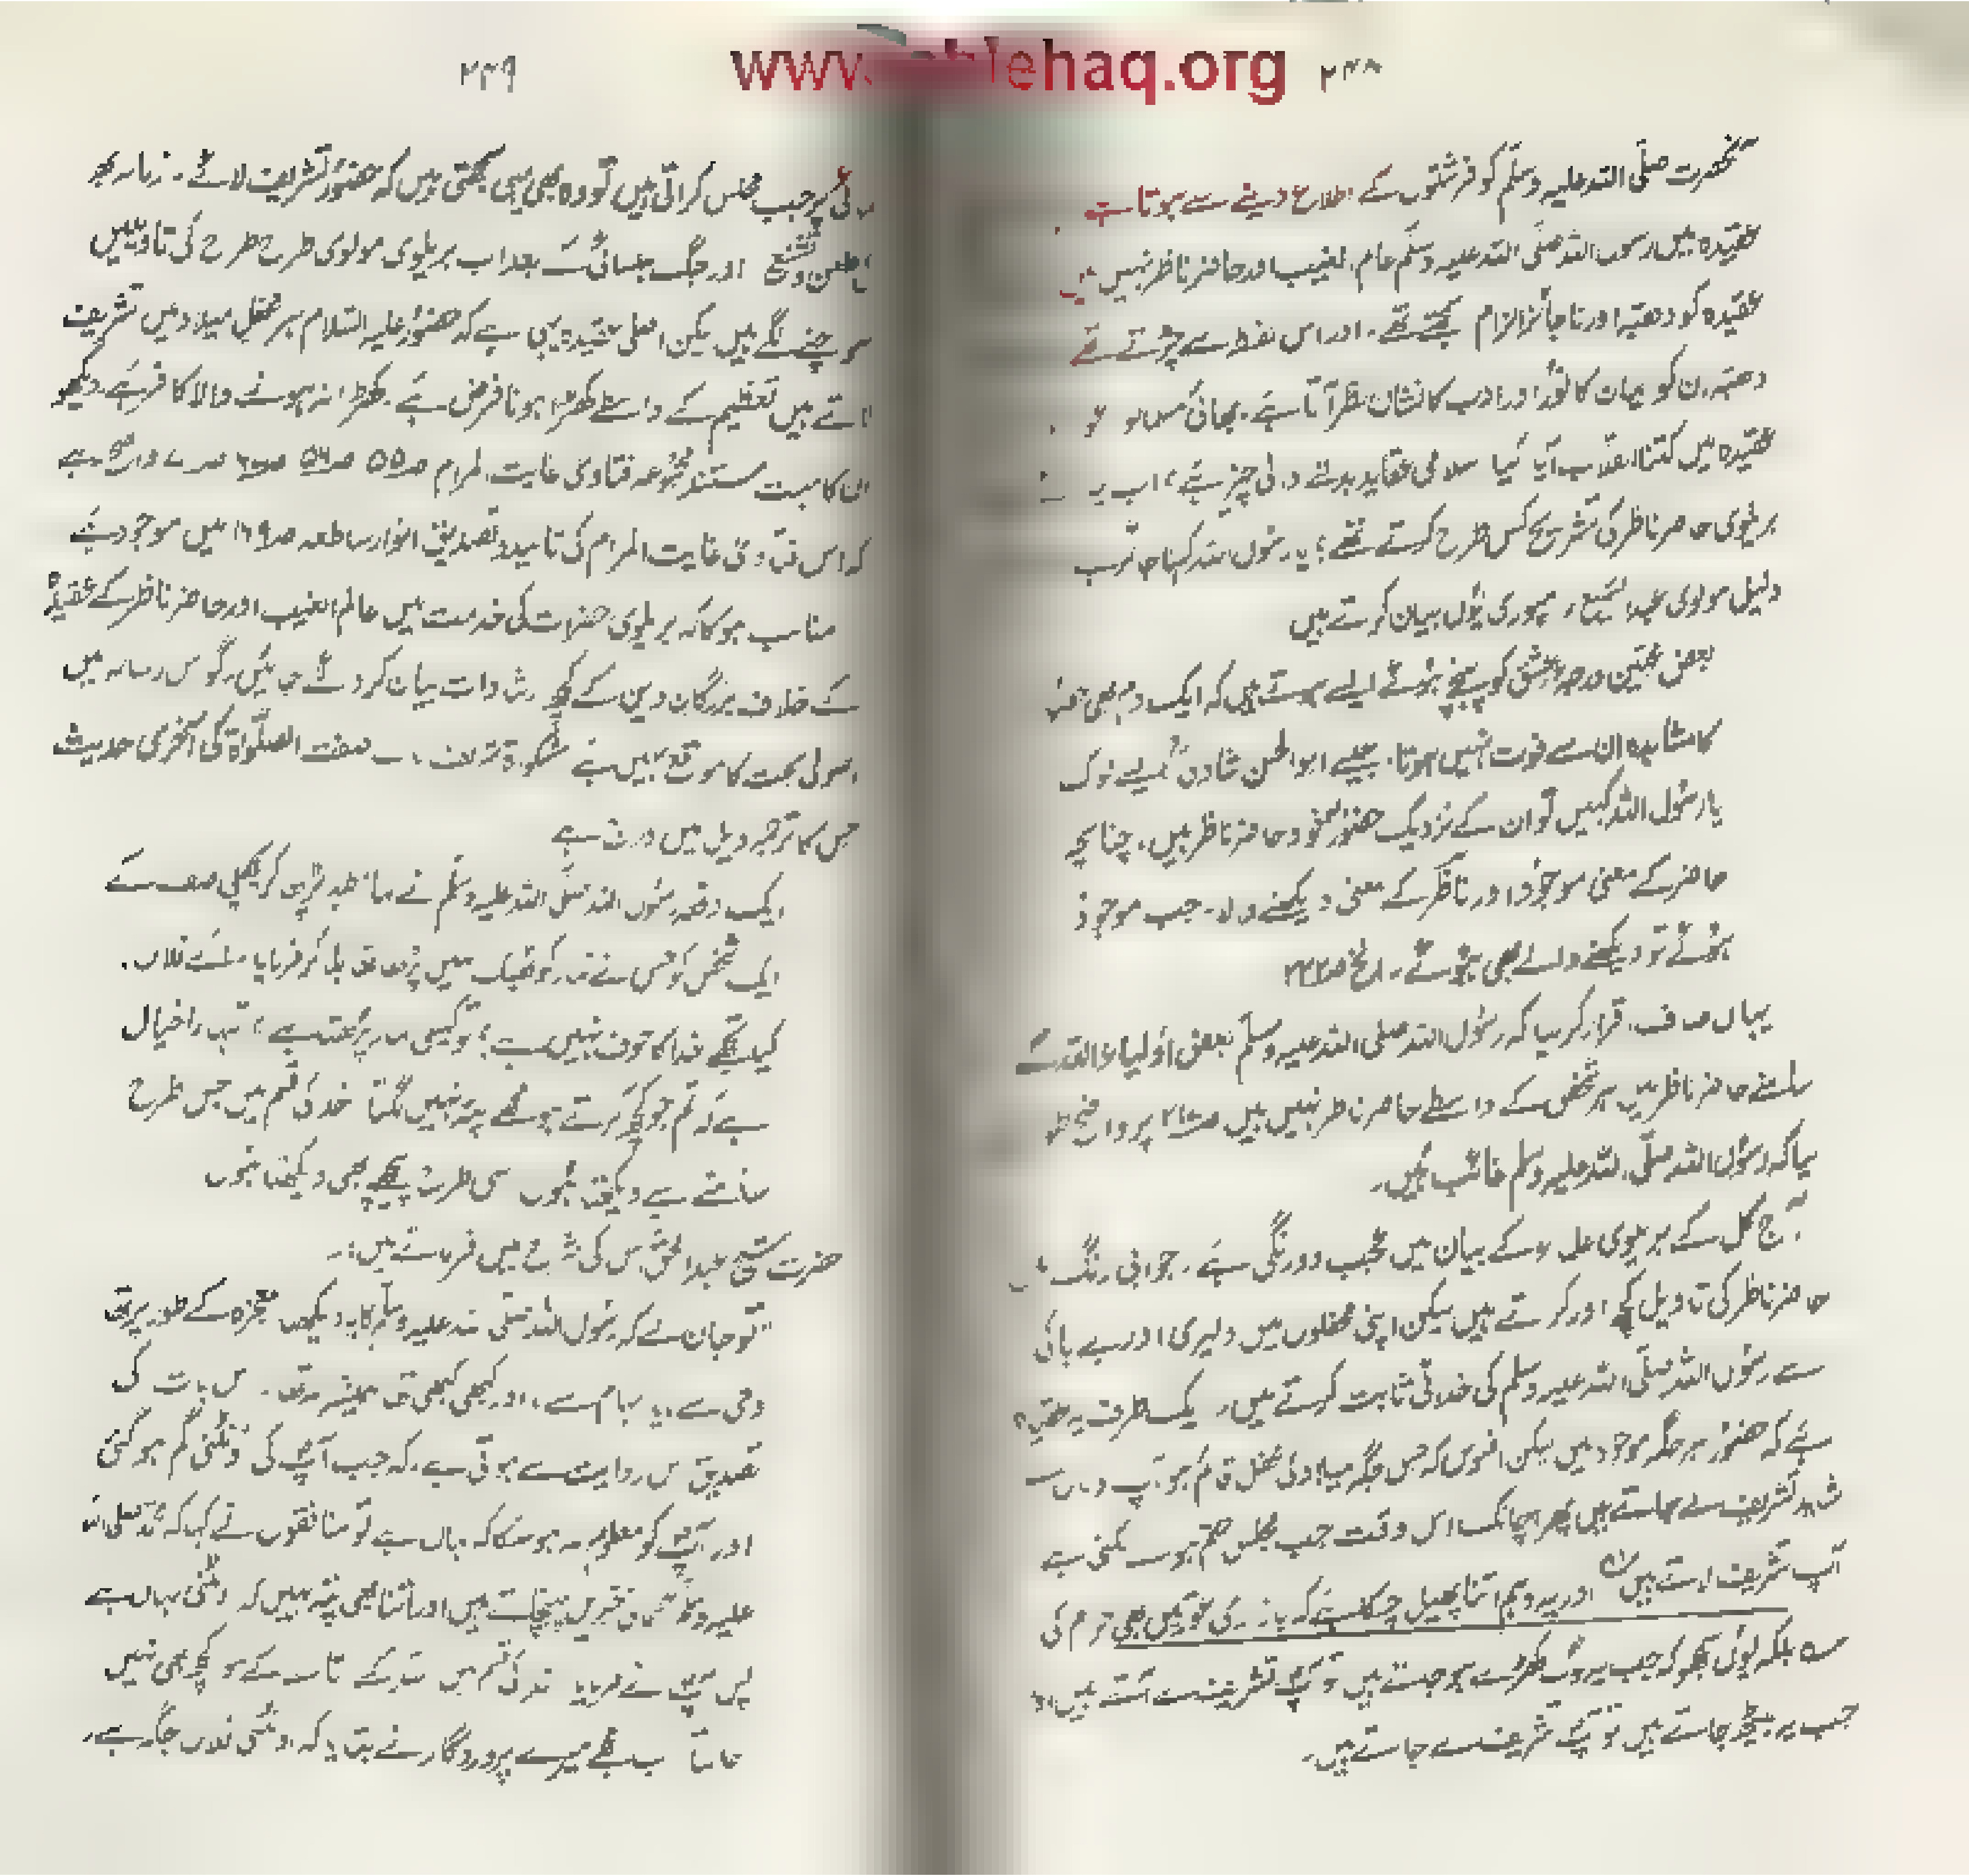 ۲۴۸
آنحضرت صلّی اللہ علیہ وسلّم کو فرشتوں کے اطلاع دینے سے ہوتا ہے
عقیدہ میں رسول اللہ صلّی اللہ علیہ وسلّم عالم الغیب اور حاضر ناظر نہیں ہیں
عقیدہ کو دھبّہ اور ناجائز الزام سمجھتے تھے۔ اور اس لفظ سے چڑتے تھے
کو ایمان کا نور اور ادب کا نشان نظر آتا ہے۔ بھائی مسلمانو
عقیدہ میں کتنا انقلاب آیا کیا اسلامی عقاید بدلنے والی چیز ہے؟ اب یہ
بریلوی حاضر ناظر کی تشریح کس طرح کرتے تھے؟ یا رسول اللہ کہنا جائز ہے
دلیل مولوی عبد السمیع رامپوری یوں بیان کرتے ہیں
بعض محبّین درجہ عشق کو پہنچے ہوئے ایسے ہوتے ہیں کہ ایک دم بھی
کا مشاہدہ ان سے فوت نہیں ہوتا۔ جیسے ابو الحسن شاذلی ایسے لوگ
یا رسول اللہ کہیں تو ان کے نزدیک حضور خود حاضر ناظر ہیں۔ چنانچہ
حاضر کے معنی موجود اور ناظر کے معنی دیکھنے والا۔ جب موجود
ہوئے تو دیکھنے والے بھی ہوئے۔ الخ
یہاں صاف اقرار کر لیا کہ رسول اللہ صلی اللہ علیہ وسلم بعض اولیاء اللہ کے
سامنے حاضر ناظر ہیں ہر شخص کے واسطے حاضر ناظر نہیں ہیں پر واضح
کیا کہ رسول اللہ صلّی اللہ علیہ وسلم غائب ہیں۔
آج کل کے بریلوی علماء کے بیان میں عجب دورنگی ہے۔ جوابی رنگ میں
حاضر ناظر کی تاویل کچھ اور کرتے ہیں لیکن اپنی محفلوں میں دلیری اور بے باکی
سے رسول اللہ صلّی اللہ علیہ وسلم کی خدائی ثابت کرتے ہیں۔ ایک طرف یہ عقیدہ
ہے کہ حضور ہر جگہ موجود ہیں لیکن افسوس کہ جس جگہ میلاد کی محفل قائم ہو آپ وہاں سے
شاید تشریف لے جاتے ہیں پھر اچانک اس وقت جب مجلس ختم ہونے لگتی ہے
آپ تشریف لاتے ہیں اور یہ وہم اتنا پھیل چکا ہے کہ بازاری عورتیں بھی حرام کی
بلکہ یوں سمجھو کہ جب یہ لوگ کھڑے ہو جاتے ہیں تو آپ تشریف لے آتے ہیں اور
جب یہ بیٹھ جاتے ہیں تو آپ تشریف لے جاتے ہیں۔
۲۴۹
کمائی پر جب مجلس کراتی ہیں تو وہ بھی یہی سمجھتی ہیں کہ حضور تشریف لائے۔ زمانہ بھر
طعن و تشنیع اور جگ ہنسائی کے بعد اب بریلوی مولوی طرح طرح کی تاویلیں
سوچنے لگے ہیں لیکن اصلی عقیدہ یہی ہے کہ حضور علیہ السّلام ہر محفل میلاد میں تشریف
لاتے ہیں تعظیم کے واسطے کھڑا ہونا فرض ہے۔ کھڑا نہ ہونے والا کافر ہے۔ دیکھو
ان کا بہت مستند مجموعہ فتاوی غایت المرام واضح رہے
کہ اس فتاویٰ غایت المرام کی تائید و تصدیق انوار ساطعہ میں موجود ہے
مناسب ہوگا کہ بریلوی حضرات کی خدمت میں عالم الغیب اور حاضر ناظر کے عقیدہ
کے خلاف بزرگان دین کے کچھ ارشادات بیان کر دئے جائیں۔ گو اس رسالہ میں
اصولی بحث کا موقع نہیں ہے مشکوٰۃ شریف باب صفت الصلوٰۃ کی آخری حدیث
جس کا ترجمہ ذیل میں درج ہے
ایک دفعہ رسول اللہ صلّی اللہ علیہ وسلّم نے نماز ظہر پڑھا کر پچھلی صف کے
ایک شخص کو جس نے نماز کو ٹھیک نہیں پڑھا تھا بلا کر فرمایا۔ اے فلاں۔
کیا تجھے خدا کا خوف نہیں ہے؟ تو کیسی نماز پڑھتا ہے؟ تمہارا خیال
ہے کہ تم جو کچھ کرتے ہو مجھے پتہ نہیں لگتا خدا کی قسم میں جس طرح
سامنے سے دیکھتا ہوں اسی طرح پیچھے بھی دیکھتا ہوں
حضرت شیخ عبد الحق اس کی شرح میں فرماتے ہیں:۔
تو جان لے کہ رسول اللہ صلّی اللہ علیہ وسلّم کا یہ دیکھنا معجزہ کے طور پر تھا
وحی سے یا الہام سے، اور کبھی کبھی تھا ہمیشہ نہ تھا۔ اس بات کی
تصدیق اس روایت سے ہوتی ہے۔ کہ جب آپؐ کی اونٹنی گم ہو گئی
اور آپؐ کو معلوم نہ ہو سکا کہ کہاں ہے تو منافقوں نے کہا کہ محمّد صلی اللہ
علیہ وسلم آسمان کی خبریں پہنچاتے ہیں اور اتنا بھی پتہ نہیں کہ اونٹنی کہاں ہے
پس آپؐ نے فرمایا خدا کی قسم میں کے سوا کچھ بھی نہیں
جانتا اب مجھے میرے پروردگار نے بتایا کہ اونٹنی فلاں جگہ ہے۔